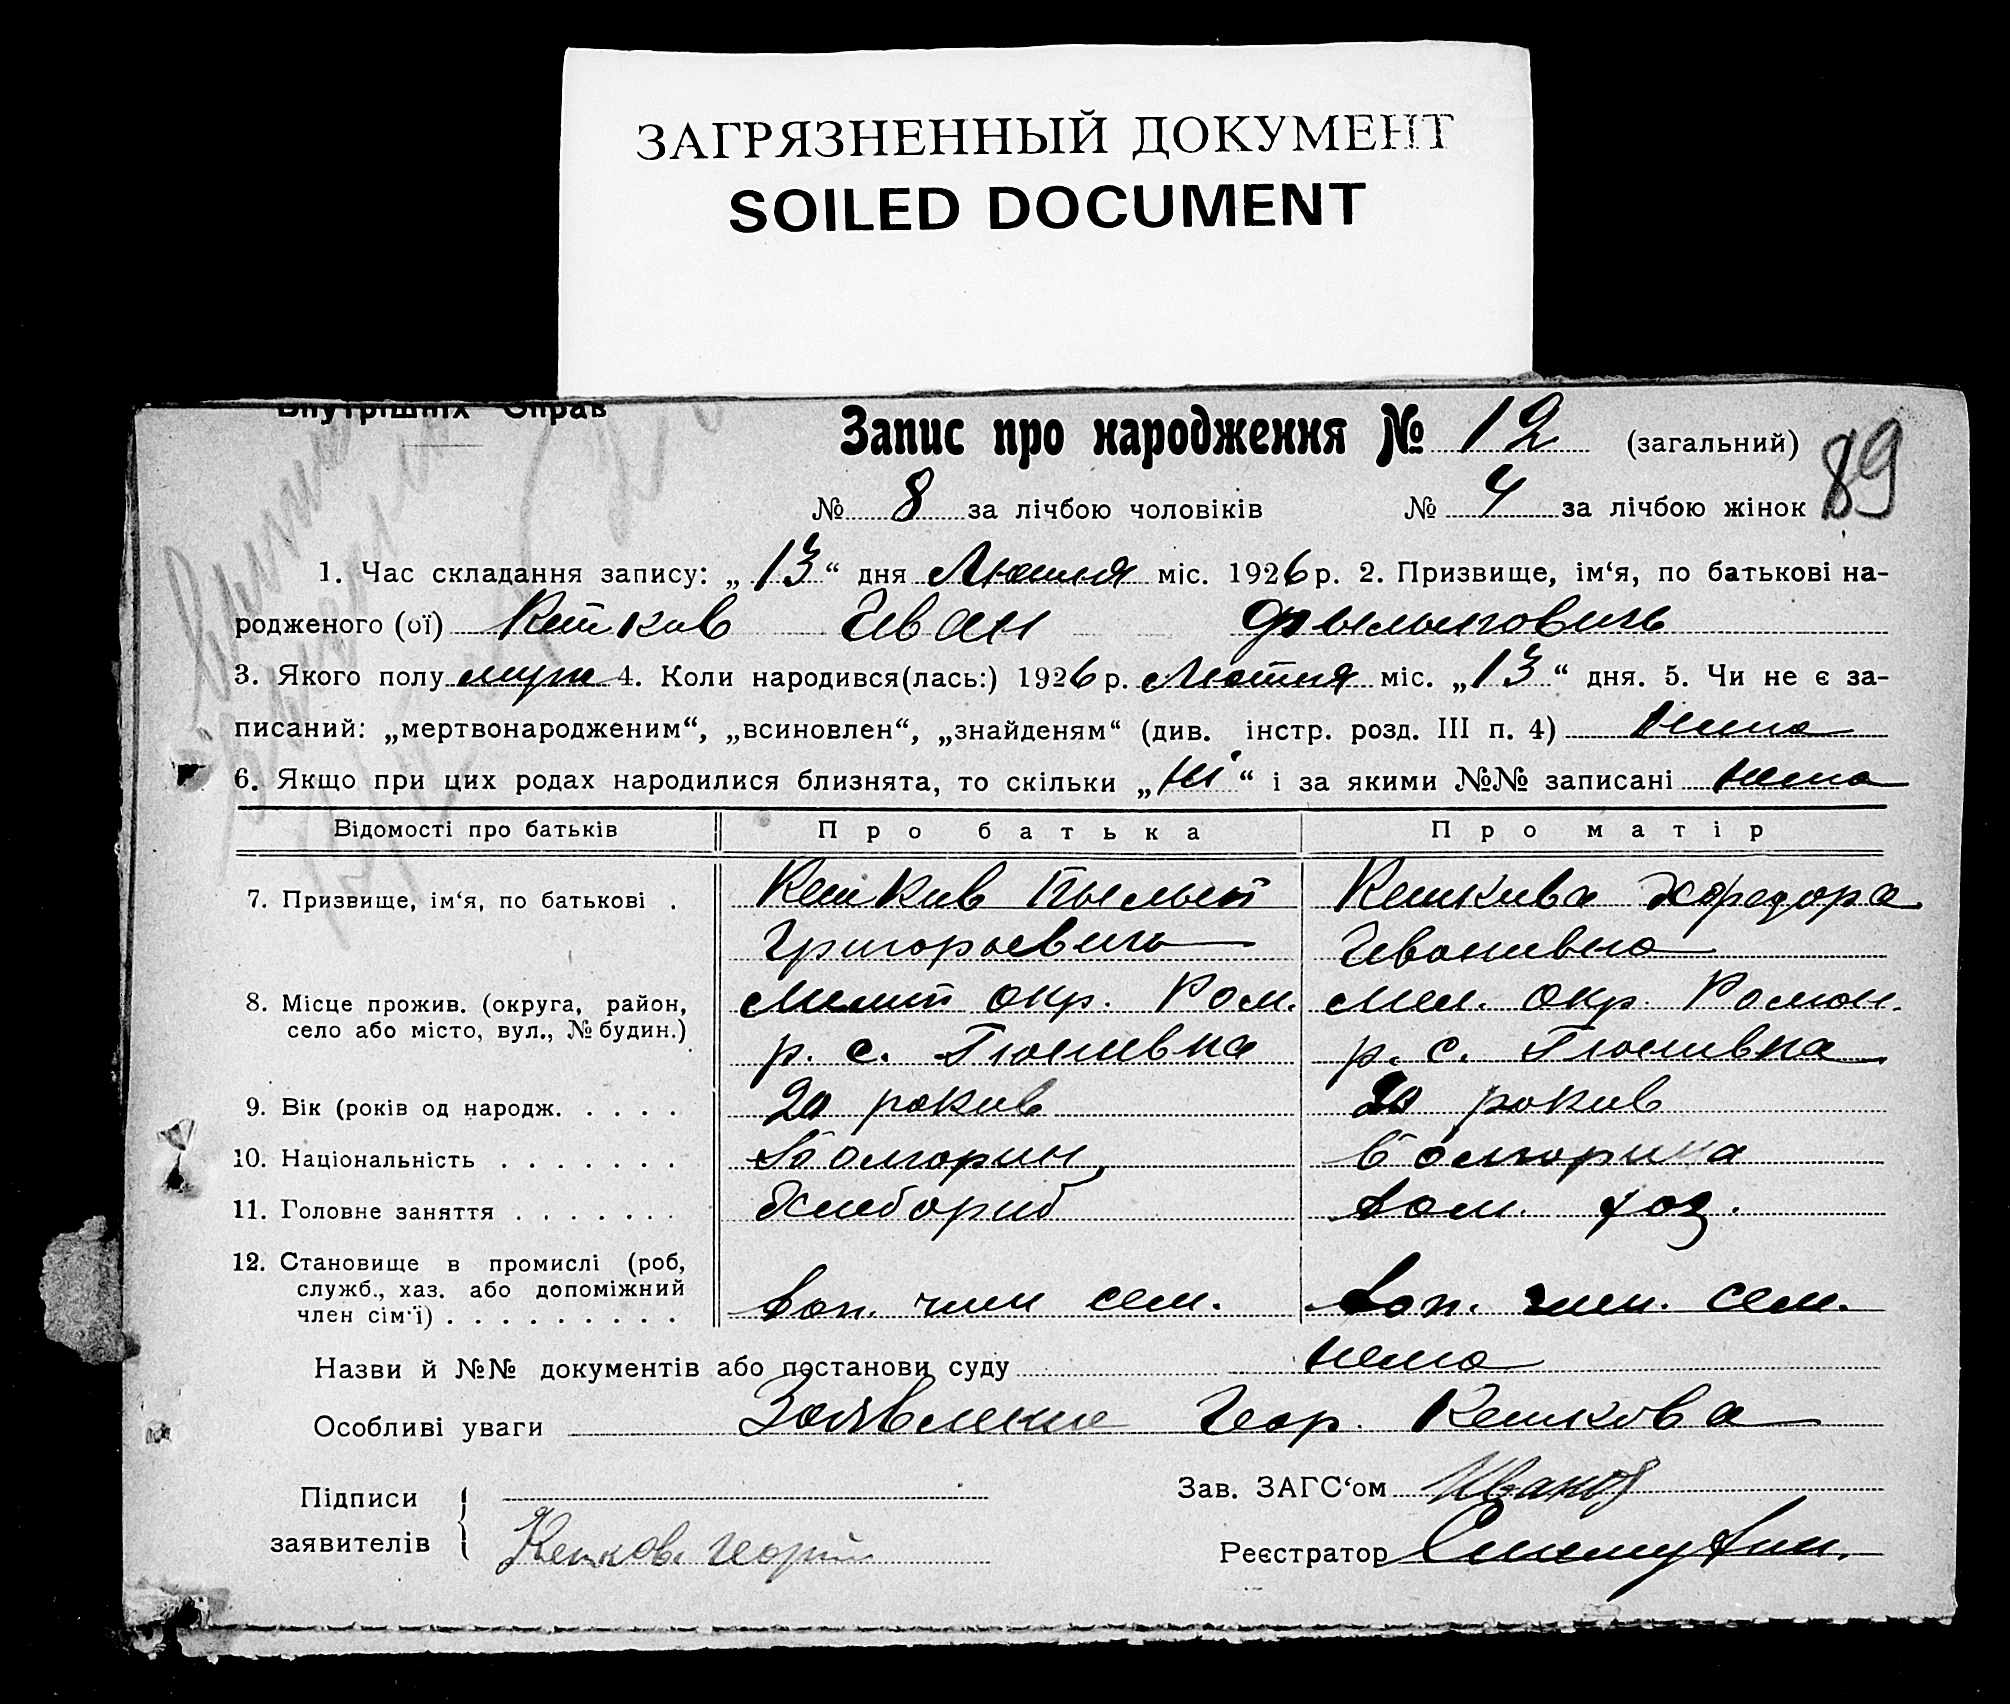 ЗАГРЯЗНЕННЫЙ ДОКУМЕНТ
SOILED DOCUMENT
Внутрішніх Справ
Запис про народження № 12 (загальний) 89
№ 8 за лічбою чоловіків № 4 за лічбою жінок
1. Час складання запису: „13“ дня Лютня міс. 1926 р. 2. Призвище, ім‘я, по батькові на-
родженого (ої) Кетков Иван Фыльыповичь
3. Якого полу муж 4. Коли народився(лась:) 1926 р. Лютня міс. „13“ дня. 5. Чи не є за-
писаний: „мертвонародженим“, „всиновлен“, „знайденям“ (див. інстр. розд. III п. 4) Нема
6. Якщо при цих родах народилися близнята, то скільки „Ні“ і за якими №№ записані нема
Відомості про батьків Про батька Про матір
7. Призвище, ім‘я, по батькові . Кеткив Пыльып Кеткива Хфедора
Григорьевичь Иванивна
8. Місце прожив. (округа, район, Мелит окр. Ром. Мел. окр. Роман.
село або місто, вул., № будин.) р. с. Гюнивка р. с. Гюнивка
9. Вік (років од народж. . . . . 20 рокив 20 рокив
10. Національність . . . . . . . Болгорин Болгорина
11. Головне заняття . . . . . . . Хлибориб Дом. хоз.
12. Становище в промислі (роб,
служб., хаз. або допоміжний Доп. член сем. Доп. член. сем.
член сім‘ї) . . . . . . . . . .
Назви й №№ документів або постанови суду нема
Особливі уваги Заявление Геор. Кеткова
Підписи Зав. ЗАГС‘ом Иванов
заявителів Кетков Георгий Реєстратор